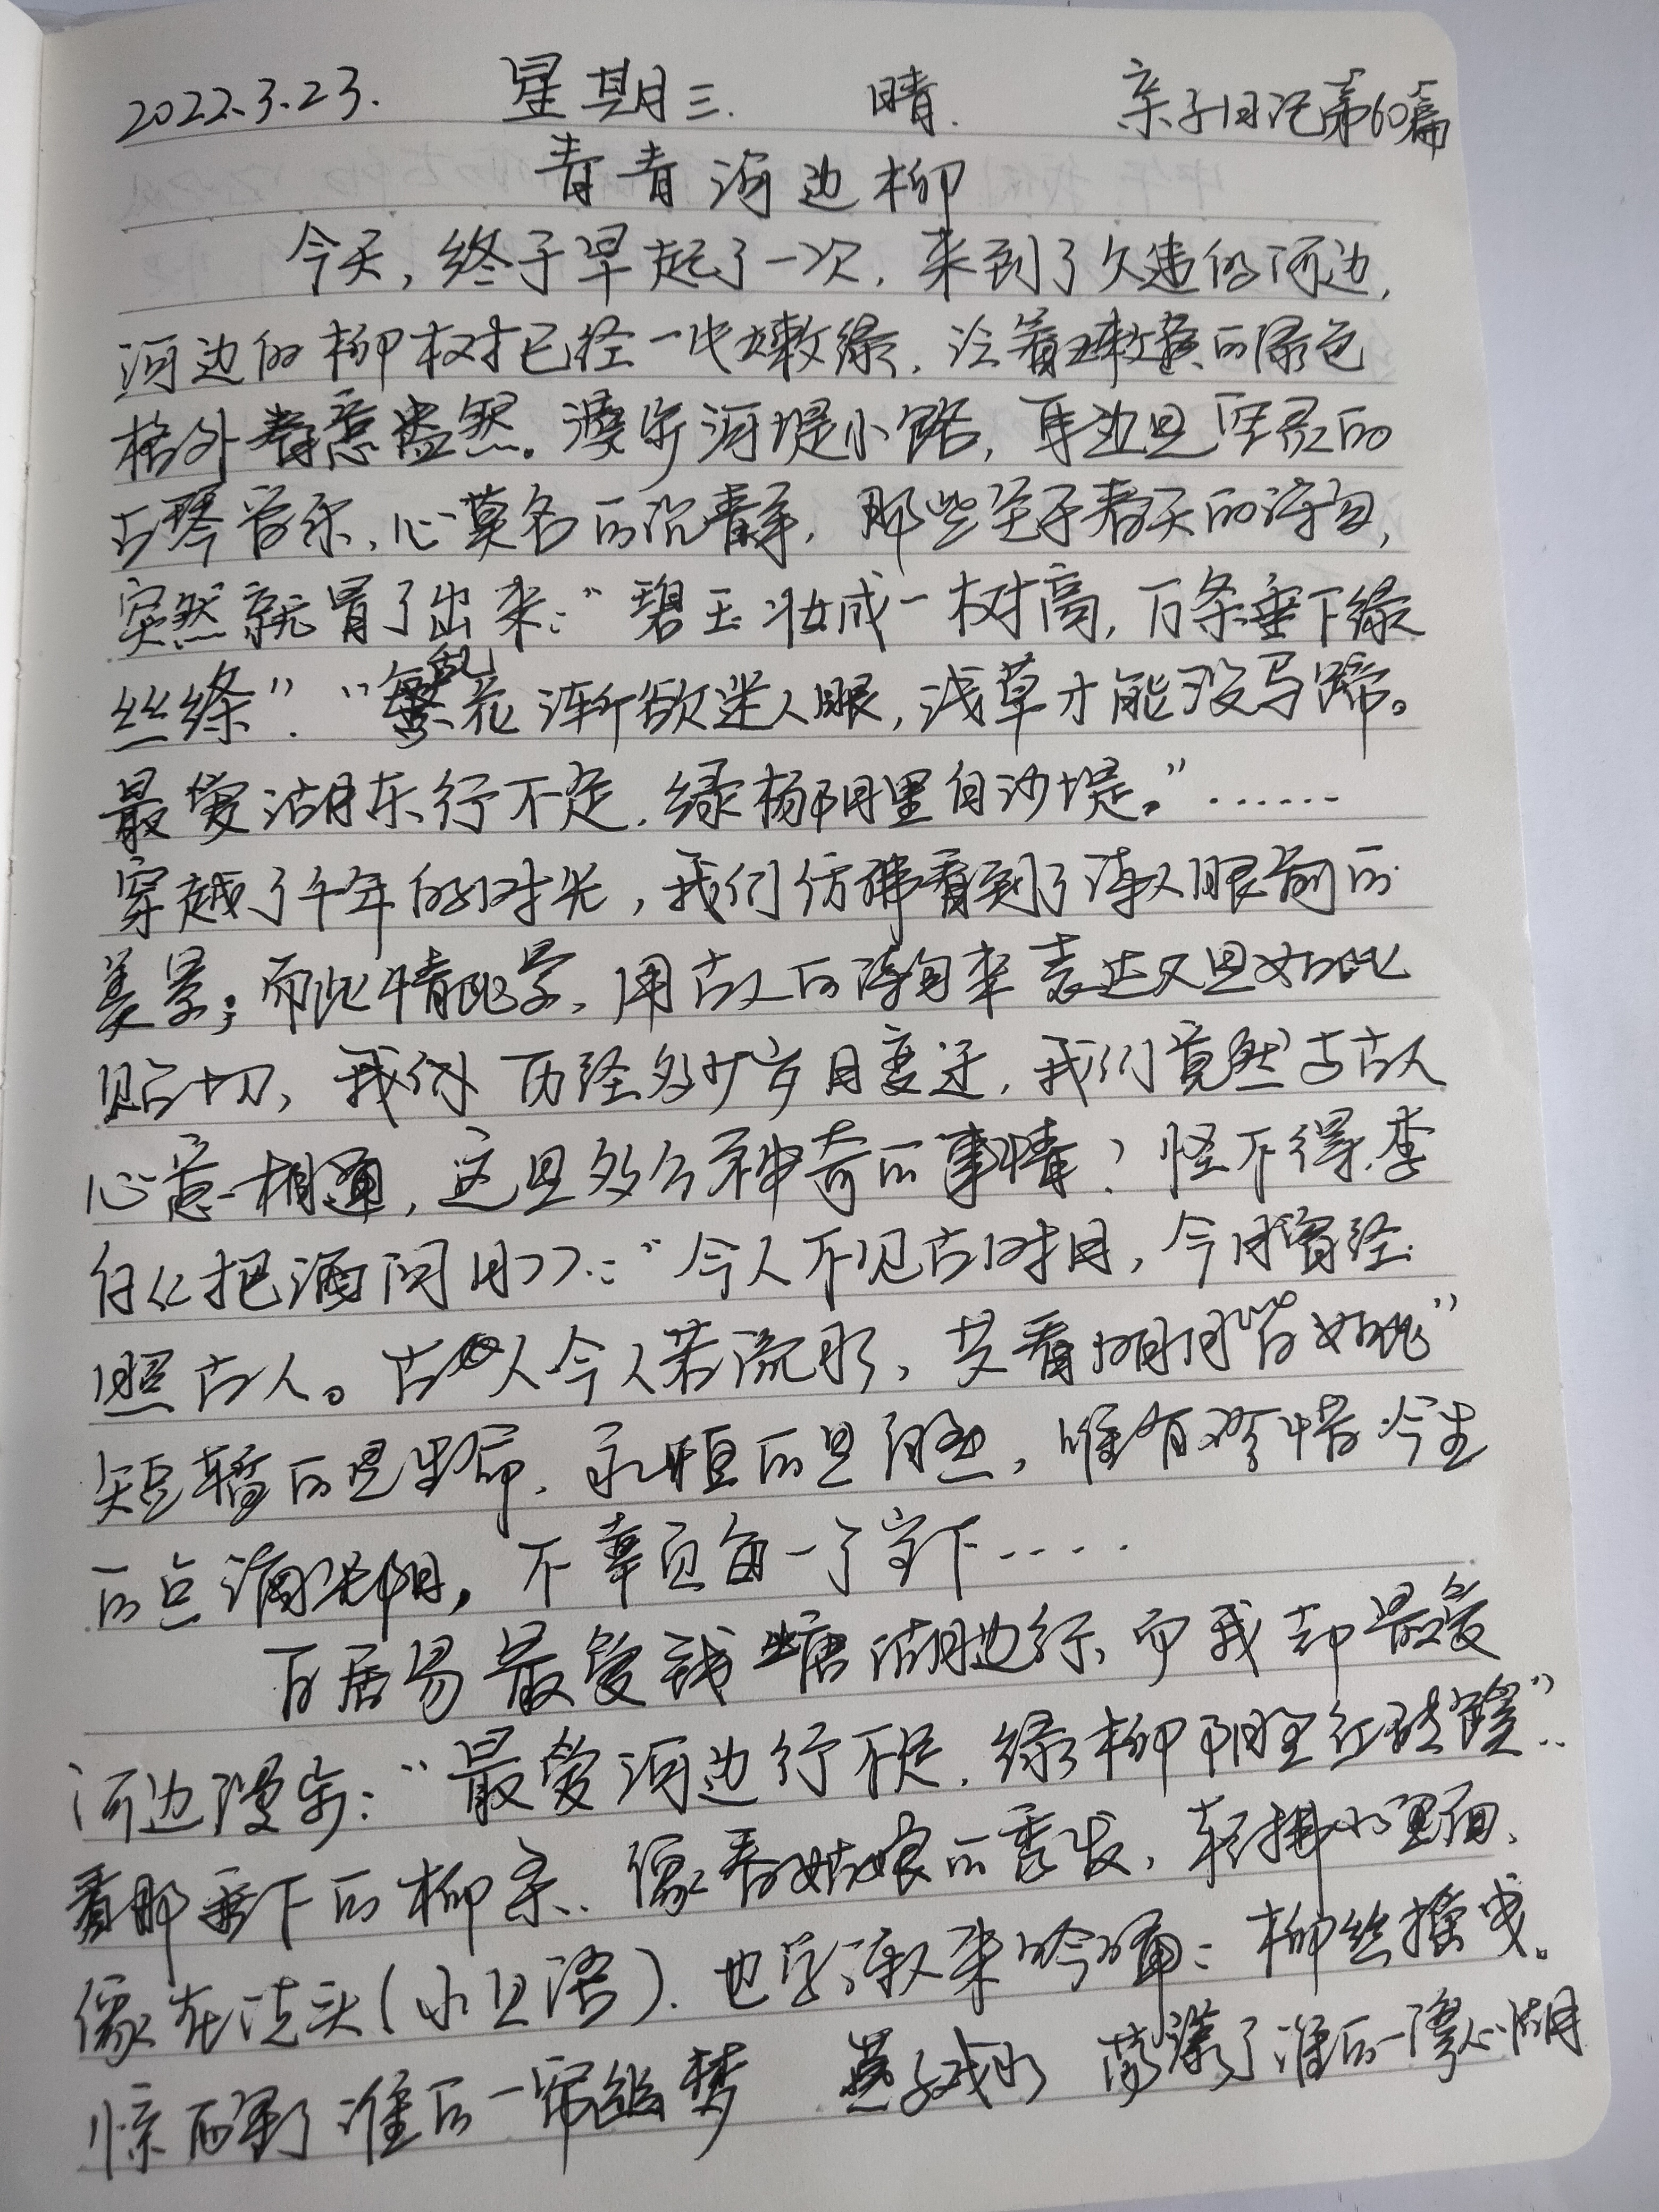 2022.3.23. 星期三. 晴. 亲子日记第60篇
青青河边柳
今天,终于早起了一次,来到了久违的河边,
河边的柳树已经一片嫩绿,泛着嫩黄的绿色
格外春意盎然。漫步河堤小路,耳边是空灵的
古琴音乐,心莫名的沉静,那些关于春天的诗句,
突然就冒了出来:“碧玉妆成一树高,万条垂下绿
丝绦”.“乱花渐欲迷人眼,浅草才能没马蹄。
最爱湖东行不足,绿杨阴里白沙堤。”······
穿越了千年的时光,我们仿佛看到了诗人眼前的
美景;而此情此景,用古人的诗句来表达又是如此
贴切,我们历经多少岁月变迁,我们竟然与古人
心意相通,这是多么神奇的事情?怪不得李
白《把酒问月》:“今人不见古时月,今月曾经
照古人。古人今人若流水,共看明月皆如此”
短暂的是生命,永恒的是自然,唯有珍惜今生
的点滴光阴,不辜负每一个当下····
白居易最爱钱塘湖边行,而我却最爱
河边漫步:“最爱河边行不足,绿柳阴里红砖路”..
看那垂下的柳条,像春姑娘的秀发,轻拂水里面,
像在洗头(小贝语).也学诗人来吟诵:柳丝摇曳。
惊醒了谁的一帘幽梦 燕子戏水 荡漾了谁的一湾心湖